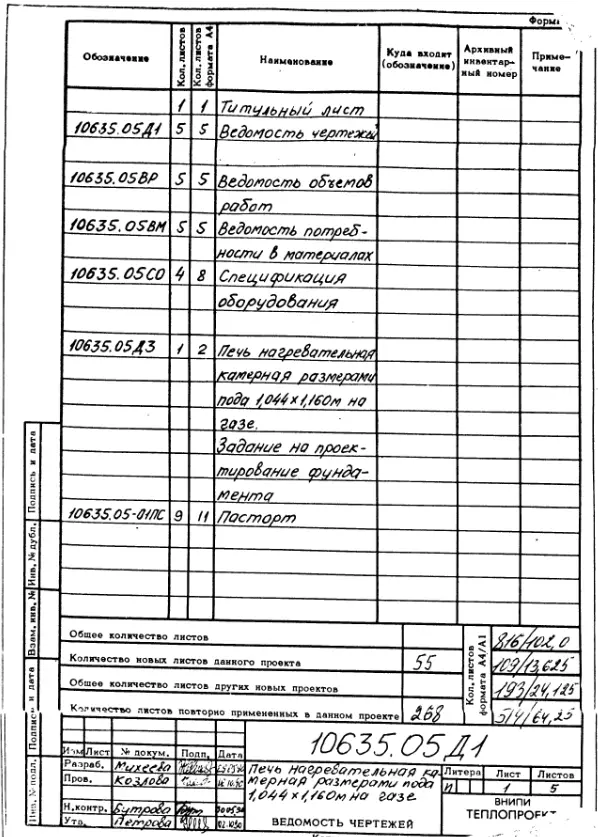 Форма
Обозначение Кол. листов Кол. листов формата А4 Наименование Куда входит (обозначение) Архивный инвентарный номер Примечание
1 1 Титульный лист
10635.05Д1 5 5 Ведомость чертежей
10635.05ВР 5 5 Ведомость объемов
работ
10635.05ВМ 5 5 Ведомость потреб-
ности в материалах
10635.05СО 4 8 Спецификация
оборудования
10635.05Д3 1 2 Печь нагревательная
камерная размерами
пода 1,044×1,160м на
газе.
Задание на проек-
тирование фунда-
мента
10635.05-01ПС 9 11 Паспорт
Общее количество листов
Количество новых листов данного проекта 55
Общее количество листов других новых проектов
Количество листов повторно примененных в данном проекте 268
Кол. листов формата А4/А1
816/102,0
109/13,625
193/24,125
514/64,25
Подпись и дата
Инв. № дубл.
Взам. инв. №
Подпись и дата
Инв. № подл.
10635.05Д1
Изм Лист № докум. Подп. Дата
Разраб. Михеева
Пров. Козлова
Н.контр. Бутрова
Утв. Петрова
Печь нагревательная ка-
мерная размерами пода
1,044×1,160м на газе
ВЕДОМОСТЬ ЧЕРТЕЖЕЙ
Литера Лист Листов
И 1 5
ВНИПИ
ТЕПЛОПРОЕКТ